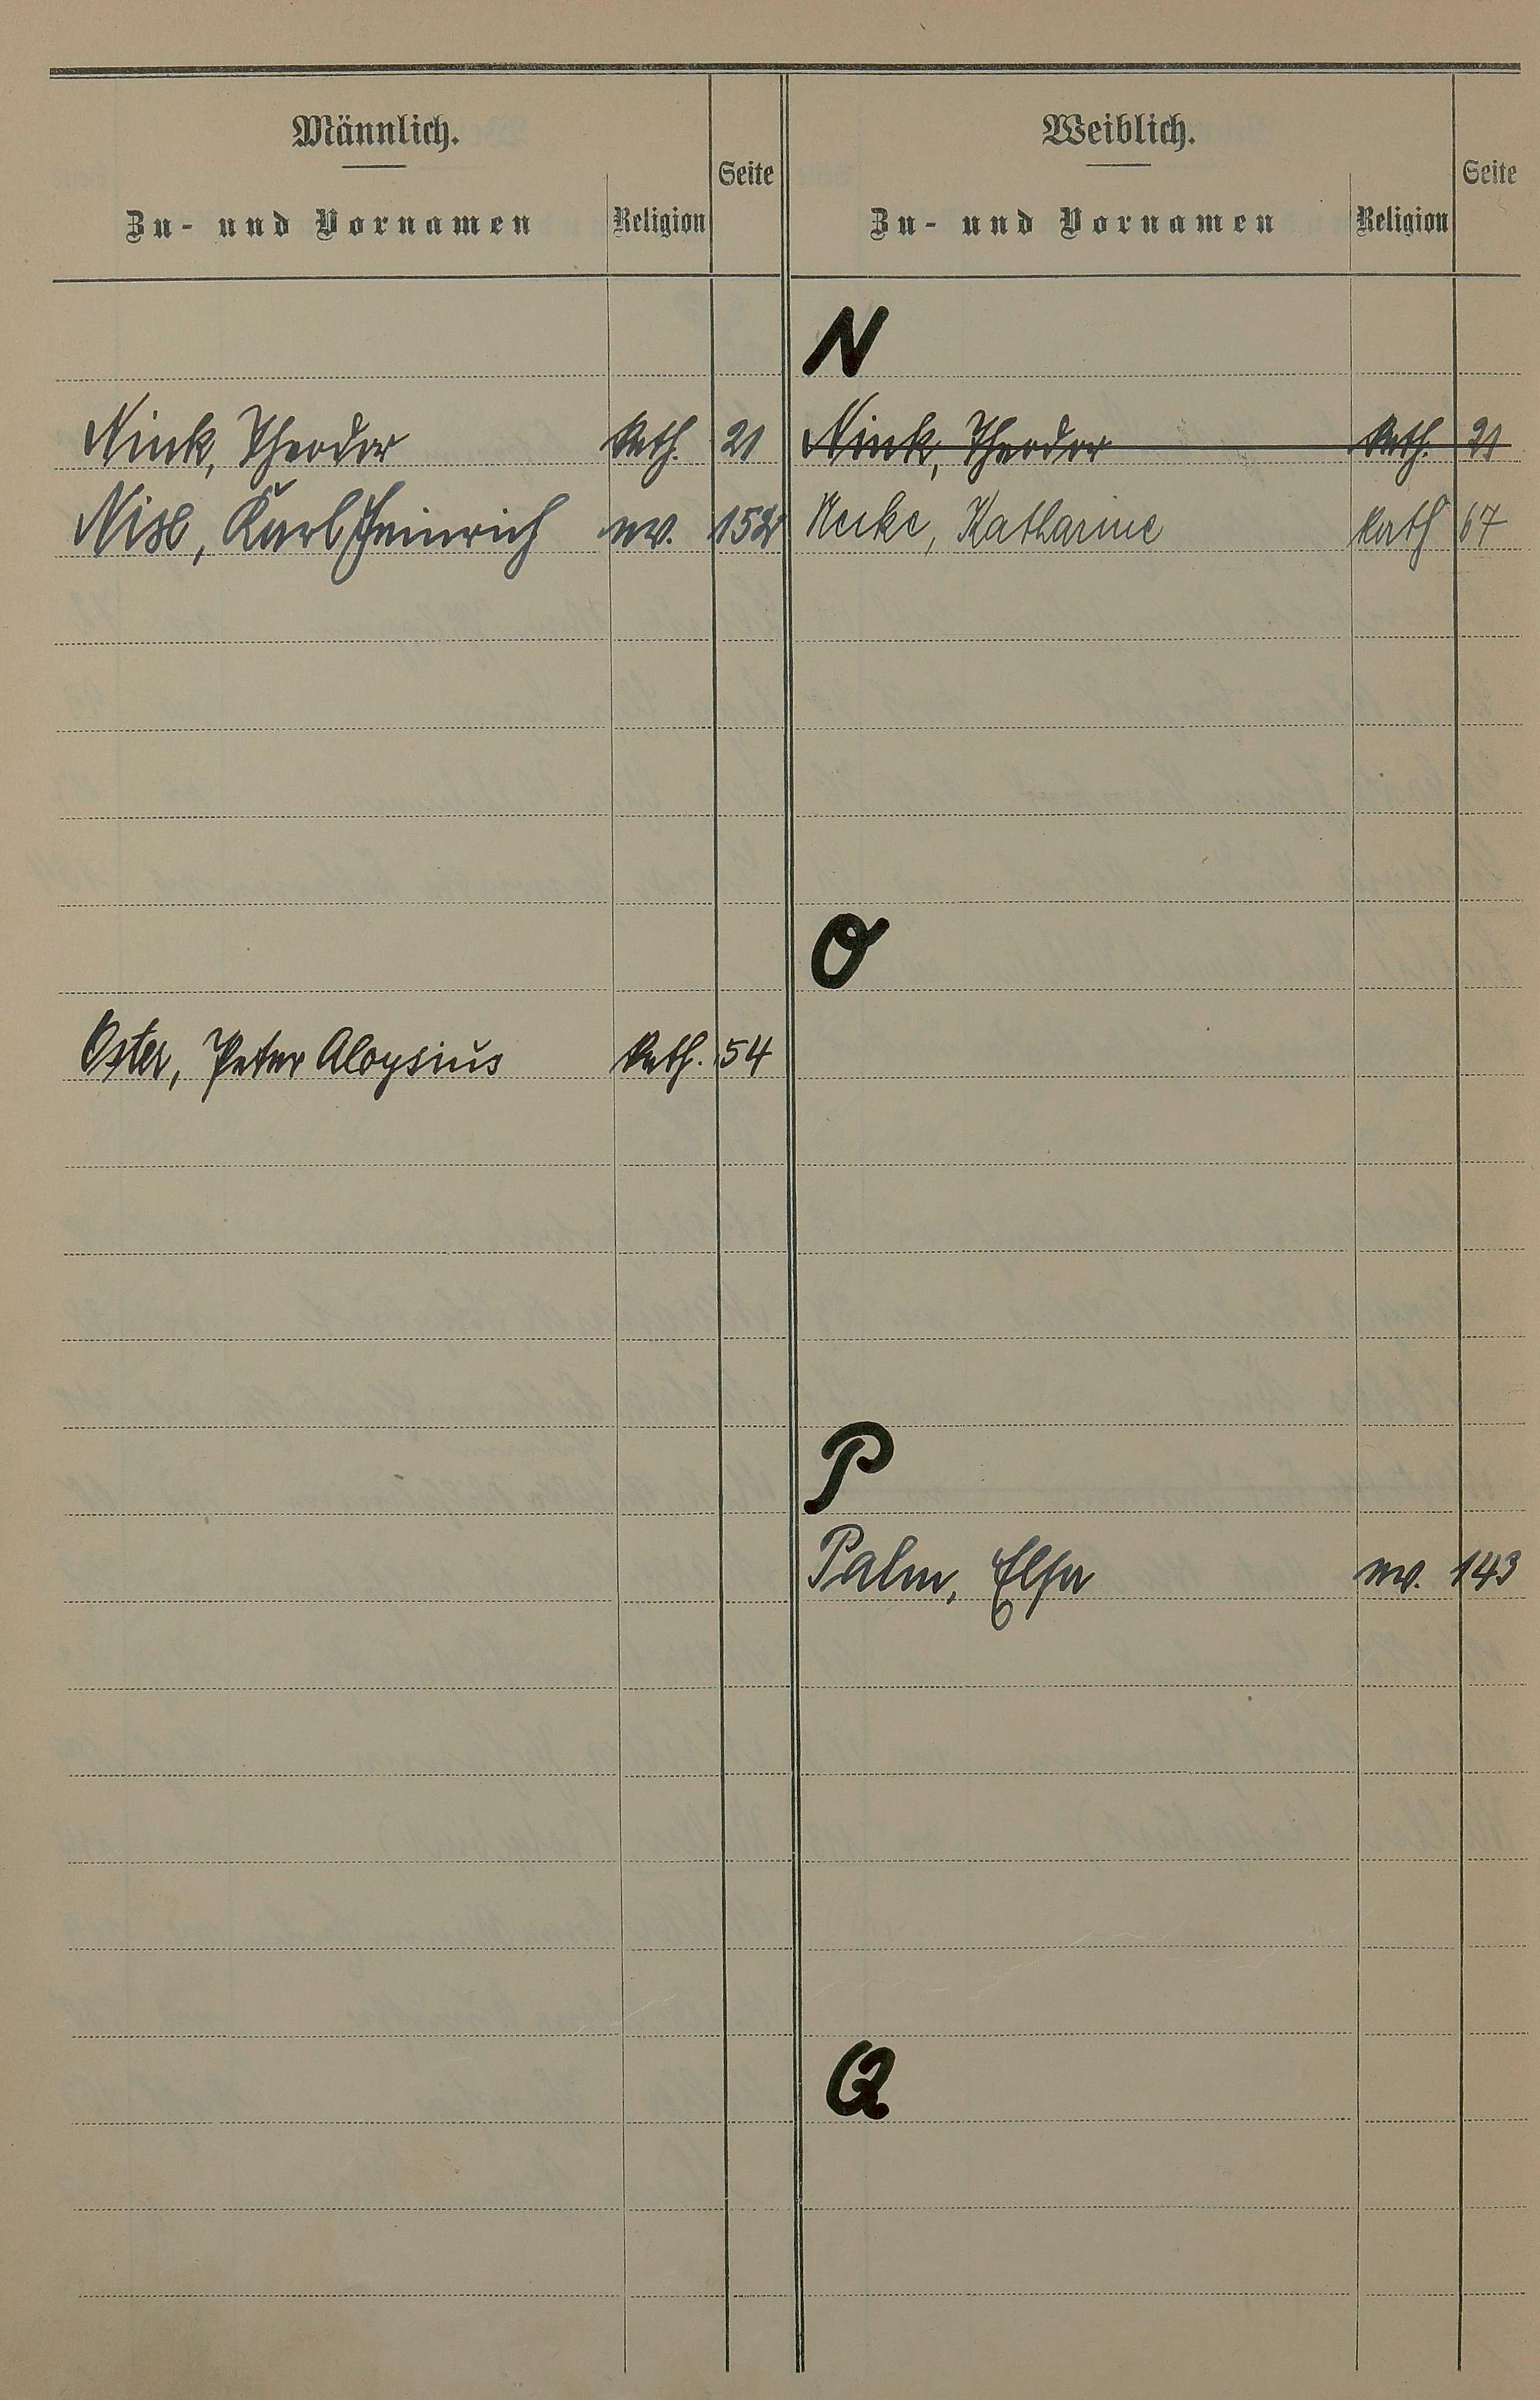 Männlich.
Zu- und Vornamen
Religion
Seite
Weiblich.
Zu- und Vornamen
Religion
Seite
N
Nink, Theodor kath. 21
Nink, Theodor kath. 21
Karl Heinrich ev. 152
Katharine kath 67
O
Oster, Peter Aloysius kath. 54
P
Palm, Elsa ev. 143
Q